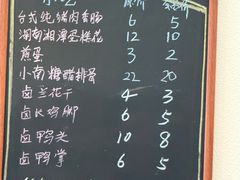 台式纯猪肉香肠 6 5
湖南湘潭蛋桂花 12 10
煎蛋 3 2
小南糖醋排骨 22 20
卤兰花干 4 3
卤长鸡脚 6 5
卤鸭头 10 8
卤鸭掌 6 5